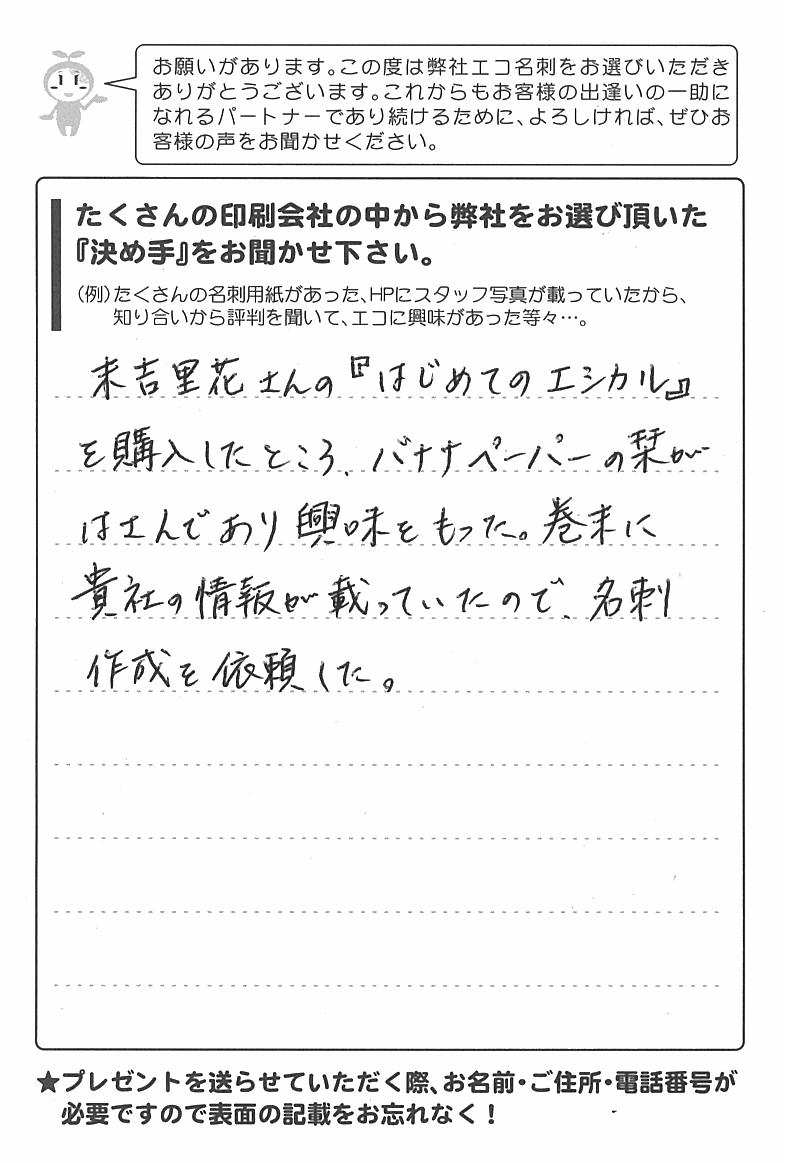 お願いがあります。この度は弊社エコ名刺をお選びいただき
ありがとうございます。これからもお客様の出逢いの一助に
なれるパートナーであり続けるために、よろしければ、ぜひお
客様の声をお聞かせください。
たくさんの印刷会社の中から弊社をお選び頂いた
『決め手』をお聞かせ下さい。
(例)たくさんの名刺用紙があった、HPにスタッフ写真が載っていたから、
知り合いから評判を聞いて、エコに興味があった等々…。
末吉里花さんの『はじめてのエシカル』
を購入したところ、バナナペーパーの栞が
はさんであり興味をもった。巻末に
貴社の情報が載っていたので、名刺
作成を依頼した。
★プレゼントを送らせていただく際、お名前・ご住所・電話番号が
必要ですので表面の記載をお忘れなく!